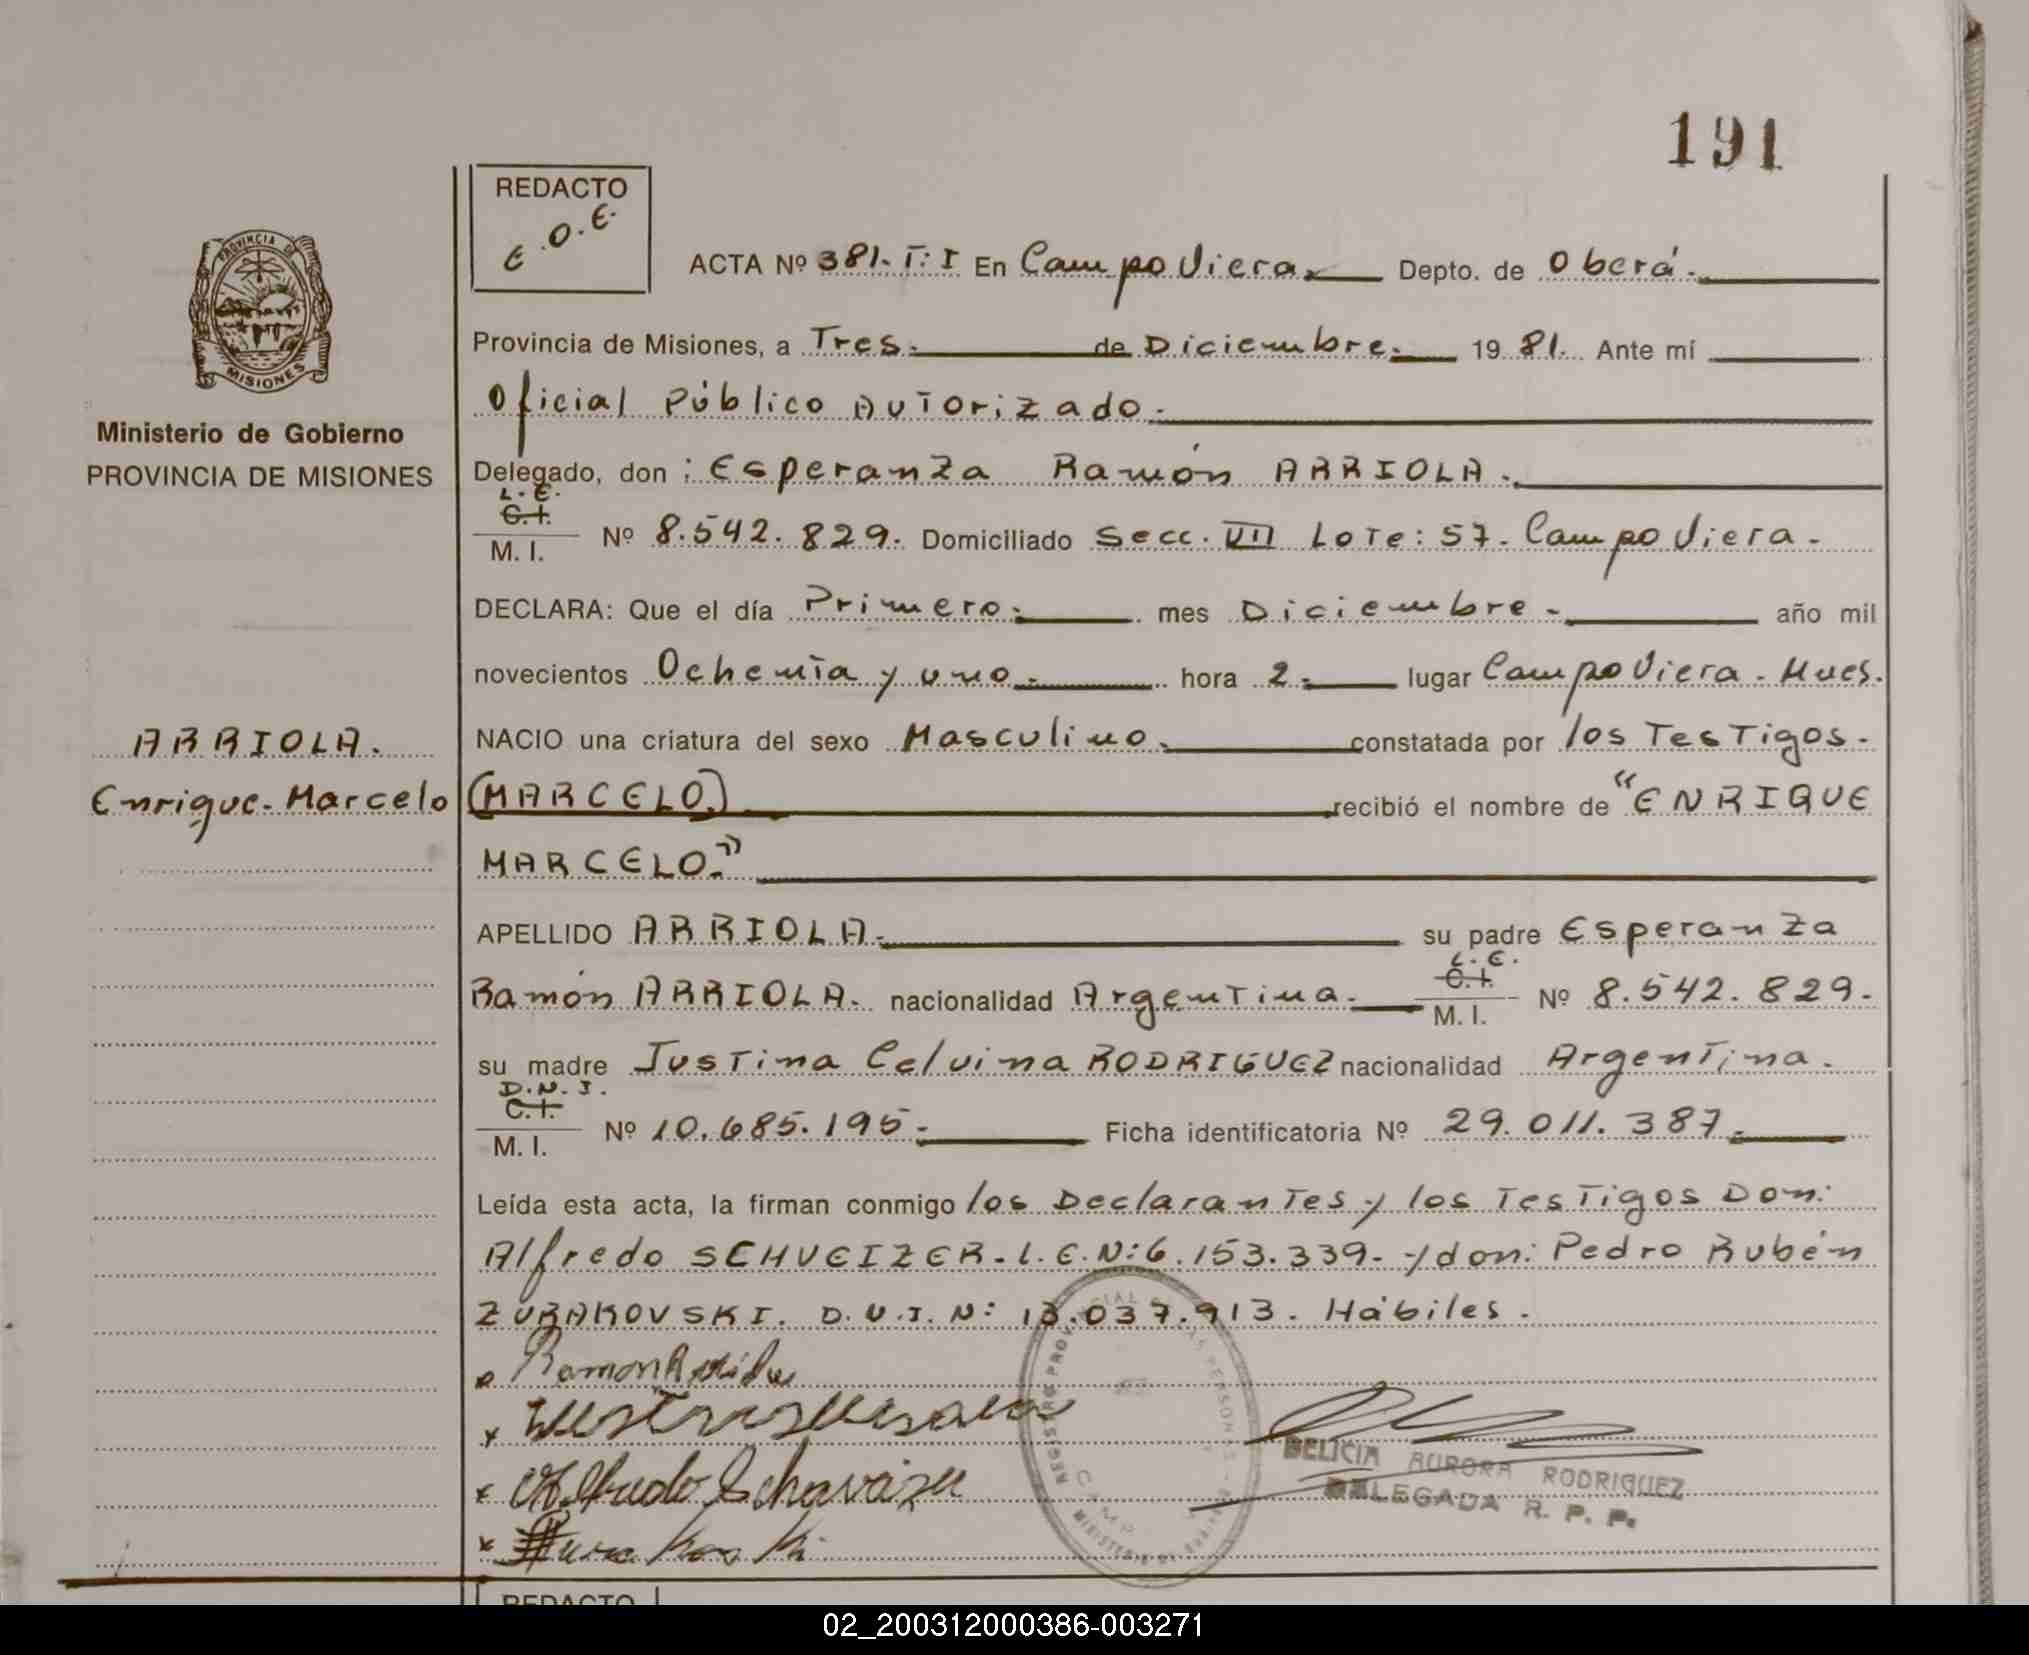 191
REDACTO
E.O.E.
PROVINCIA DE
MISIONES
ACTA Nº 381. T: I En Campo Viera. Depto. de Oberá.
Provincia de Misiones, a Tres. de Diciembre. 19 81. Ante mí
Oficial Público Autorizado.
Ministerio de Gobierno
PROVINCIA DE MISIONES
Delegado, don : Esperanza Ramón ARRIOLA.
L.E.
C.I.
M. I. Nº 8.542.829. Domiciliado Secc. VII Lote: 57. Campo Viera.
DECLARA: Que el día Primero. mes Diciembre. año mil
novecientos Ochenta y uno. hora 2. lugar Campo Viera.
ARRIOLA.
NACIO una criatura del sexo Masculino. constatada por los Testigos.
Enrique Marcelo
(MARCELO.) recibió el nombre de "ENRIQUE
MARCELO."
APELLIDO ARRIOLA. su padre Esperanza
L.E.
C.I.
Ramón ARRIOLA. nacionalidad Argentina. M. I. Nº 8.542.829.
su madre Justina Celvina RODRIGUEZ nacionalidad Argentina.
D.N.I.
C.I.
M. I. Nº 10.685.195. Ficha identificatoria Nº 29.011.387.
Leída esta acta, la firman conmigo los Declarantes y los Testigos Don:
Alfredo SCHVEIZER. L.E.N: 6.153.339. y don: Pedro Rubén
ZURAKOVSKI. D.N.I. N: 13.037.913. Hábiles.
REGISTRO PROVINCIAL
DELICIA AURORA RODRIGUEZ
DELEGADA R. P. P.
REDACTO
02_200312000386-003271